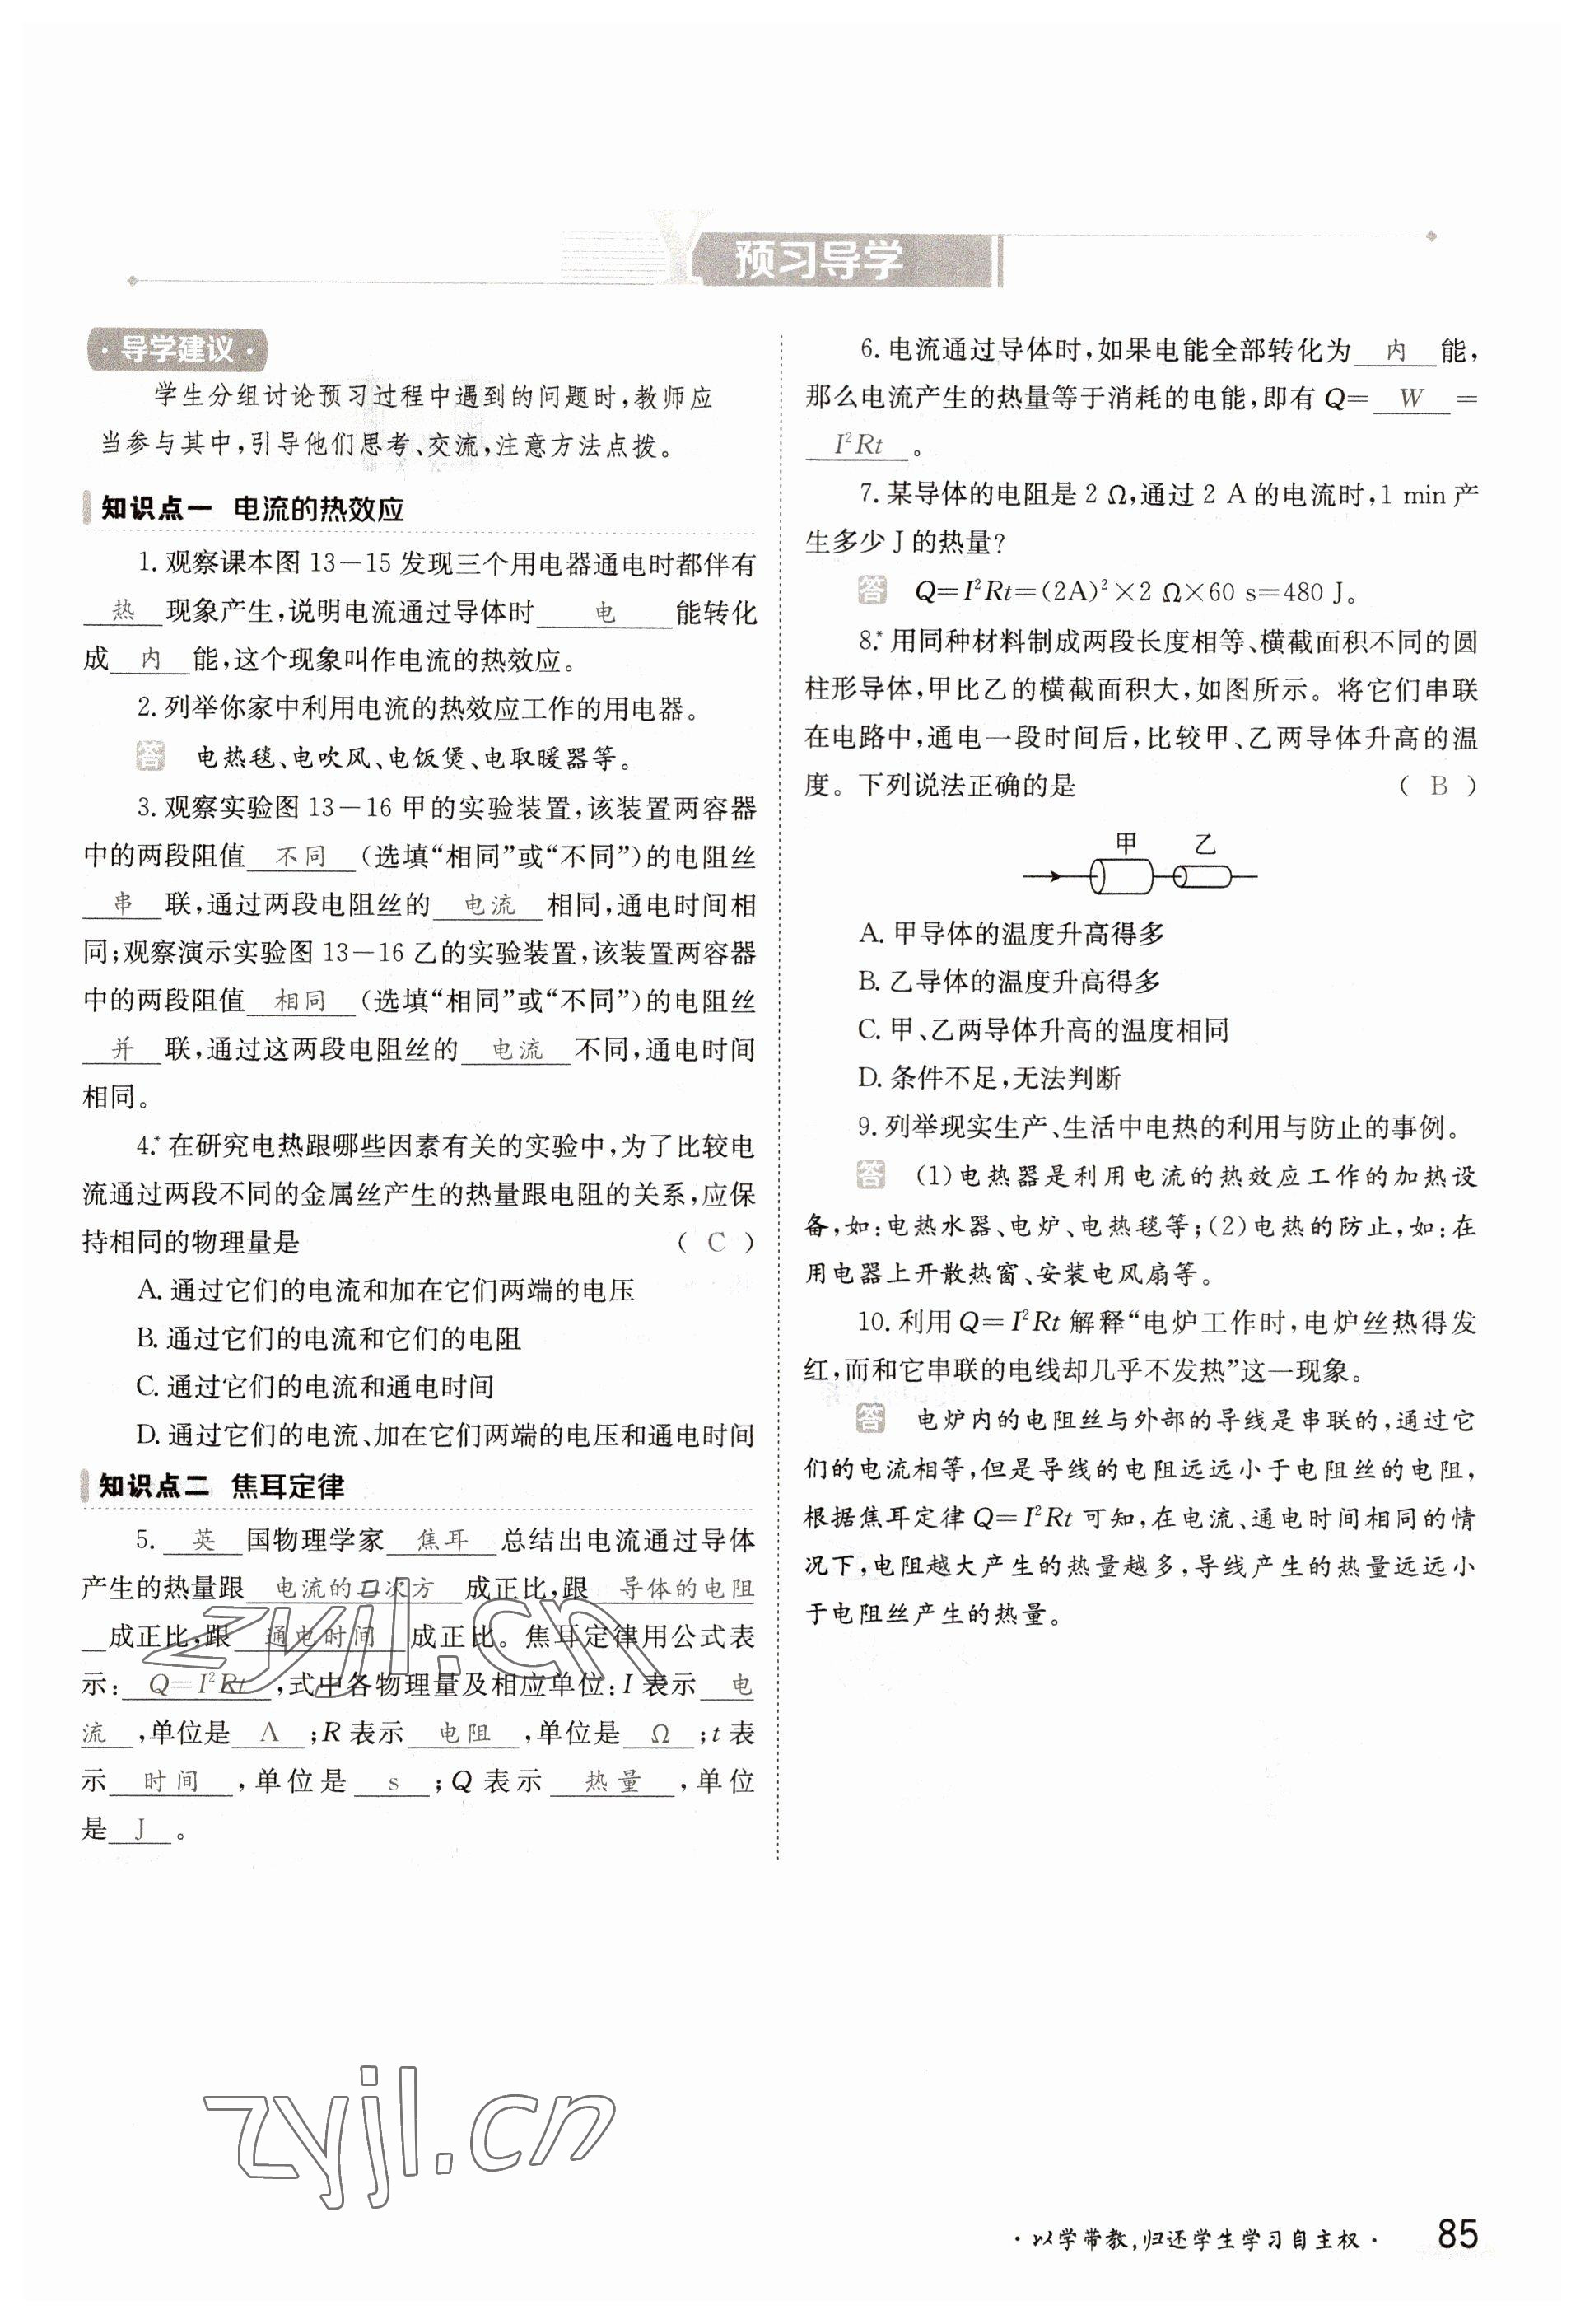 预习导学
·导学建议·
学生分组讨论预习过程中遇到的问题时,教师应
当参与其中,引导他们思考、交流,注意方法点拨。
知识点一 电流的热效应
1. 观察课本图 13－15 发现三个用电器通电时都伴有
热 现象产生,说明电流通过导体时 电 能转化
成 内 能,这个现象叫作电流的热效应。
2. 列举你家中利用电流的热效应工作的用电器。
答 电热毯、电吹风、电饭煲、电取暖器等。
3. 观察实验图 13－16 甲的实验装置,该装置两容器
中的两段阻值 不同 (选填“相同”或“不同”)的电阻丝
串 联,通过两段电阻丝的 电流 相同,通电时间相
同;观察演示实验图 13－16 乙的实验装置,该装置两容器
中的两段阻值 相同 (选填“相同”或“不同”)的电阻丝
并 联,通过这两段电阻丝的 电流 不同,通电时间
相同。
4.* 在研究电热跟哪些因素有关的实验中,为了比较电
流通过两段不同的金属丝产生的热量跟电阻的关系,应保
持相同的物理量是 ( C )
A. 通过它们的电流和加在它们两端的电压
B. 通过它们的电流和它们的电阻
C. 通过它们的电流和通电时间
D. 通过它们的电流、加在它们两端的电压和通电时间
知识点二 焦耳定律
5. 英 国物理学家 焦耳 总结出电流通过导体
产生的热量跟 电流的二次方 成正比,跟 导体的电阻
成正比,跟 通电时间 成正比。焦耳定律用公式表
示: Q=I²Rt ,式中各物理量及相应单位:I 表示 电
流 ,单位是 A ;R 表示 电阻 ,单位是 Ω ;t 表
示 时间 ,单位是 s ;Q 表示 热量 ,单位
是 J 。
6. 电流通过导体时,如果电能全部转化为 内 能,
那么电流产生的热量等于消耗的电能,即有 Q= W =
I²Rt 。
7. 某导体的电阻是 2 Ω,通过 2 A 的电流时,1 min 产
生多少 J 的热量?
答 Q=I²Rt=(2A)²×2 Ω×60 s=480 J。
8.* 用同种材料制成两段长度相等、横截面积不同的圆
柱形导体,甲比乙的横截面积大,如图所示。将它们串联
在电路中,通电一段时间后,比较甲、乙两导体升高的温
度。下列说法正确的是 ( B )
甲 乙
A. 甲导体的温度升高得多
B. 乙导体的温度升高得多
C. 甲、乙两导体升高的温度相同
D. 条件不足,无法判断
9. 列举现实生产、生活中电热的利用与防止的事例。
答 (1)电热器是利用电流的热效应工作的加热设
备,如:电热水器、电炉、电热毯等;(2)电热的防止,如:在
用电器上开散热窗、安装电风扇等。
10. 利用 Q=I²Rt 解释“电炉工作时,电炉丝热得发
红,而和它串联的电线却几乎不发热”这一现象。
答 电炉内的电阻丝与外部的导线是串联的,通过它
们的电流相等,但是导线的电阻远远小于电阻丝的电阻,
根据焦耳定律 Q=I²Rt 可知,在电流、通电时间相同的情
况下,电阻越大产生的热量越多,导线产生的热量远远小
于电阻丝产生的热量。
zyjl.cn
zyjl.cn
·以学带教,归还学生学习自主权· 85